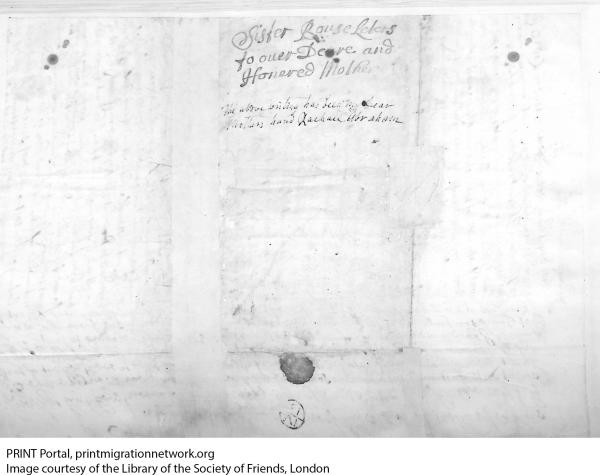 Sister Rouse Leters
to ouer Deare and
Honered Mother
the above writing has been my dear
Mothers hand Rachael Abraham
PRINT Portal, printmigrationnetwork.org
Image courtesy of the Library of the Society of Friends, London